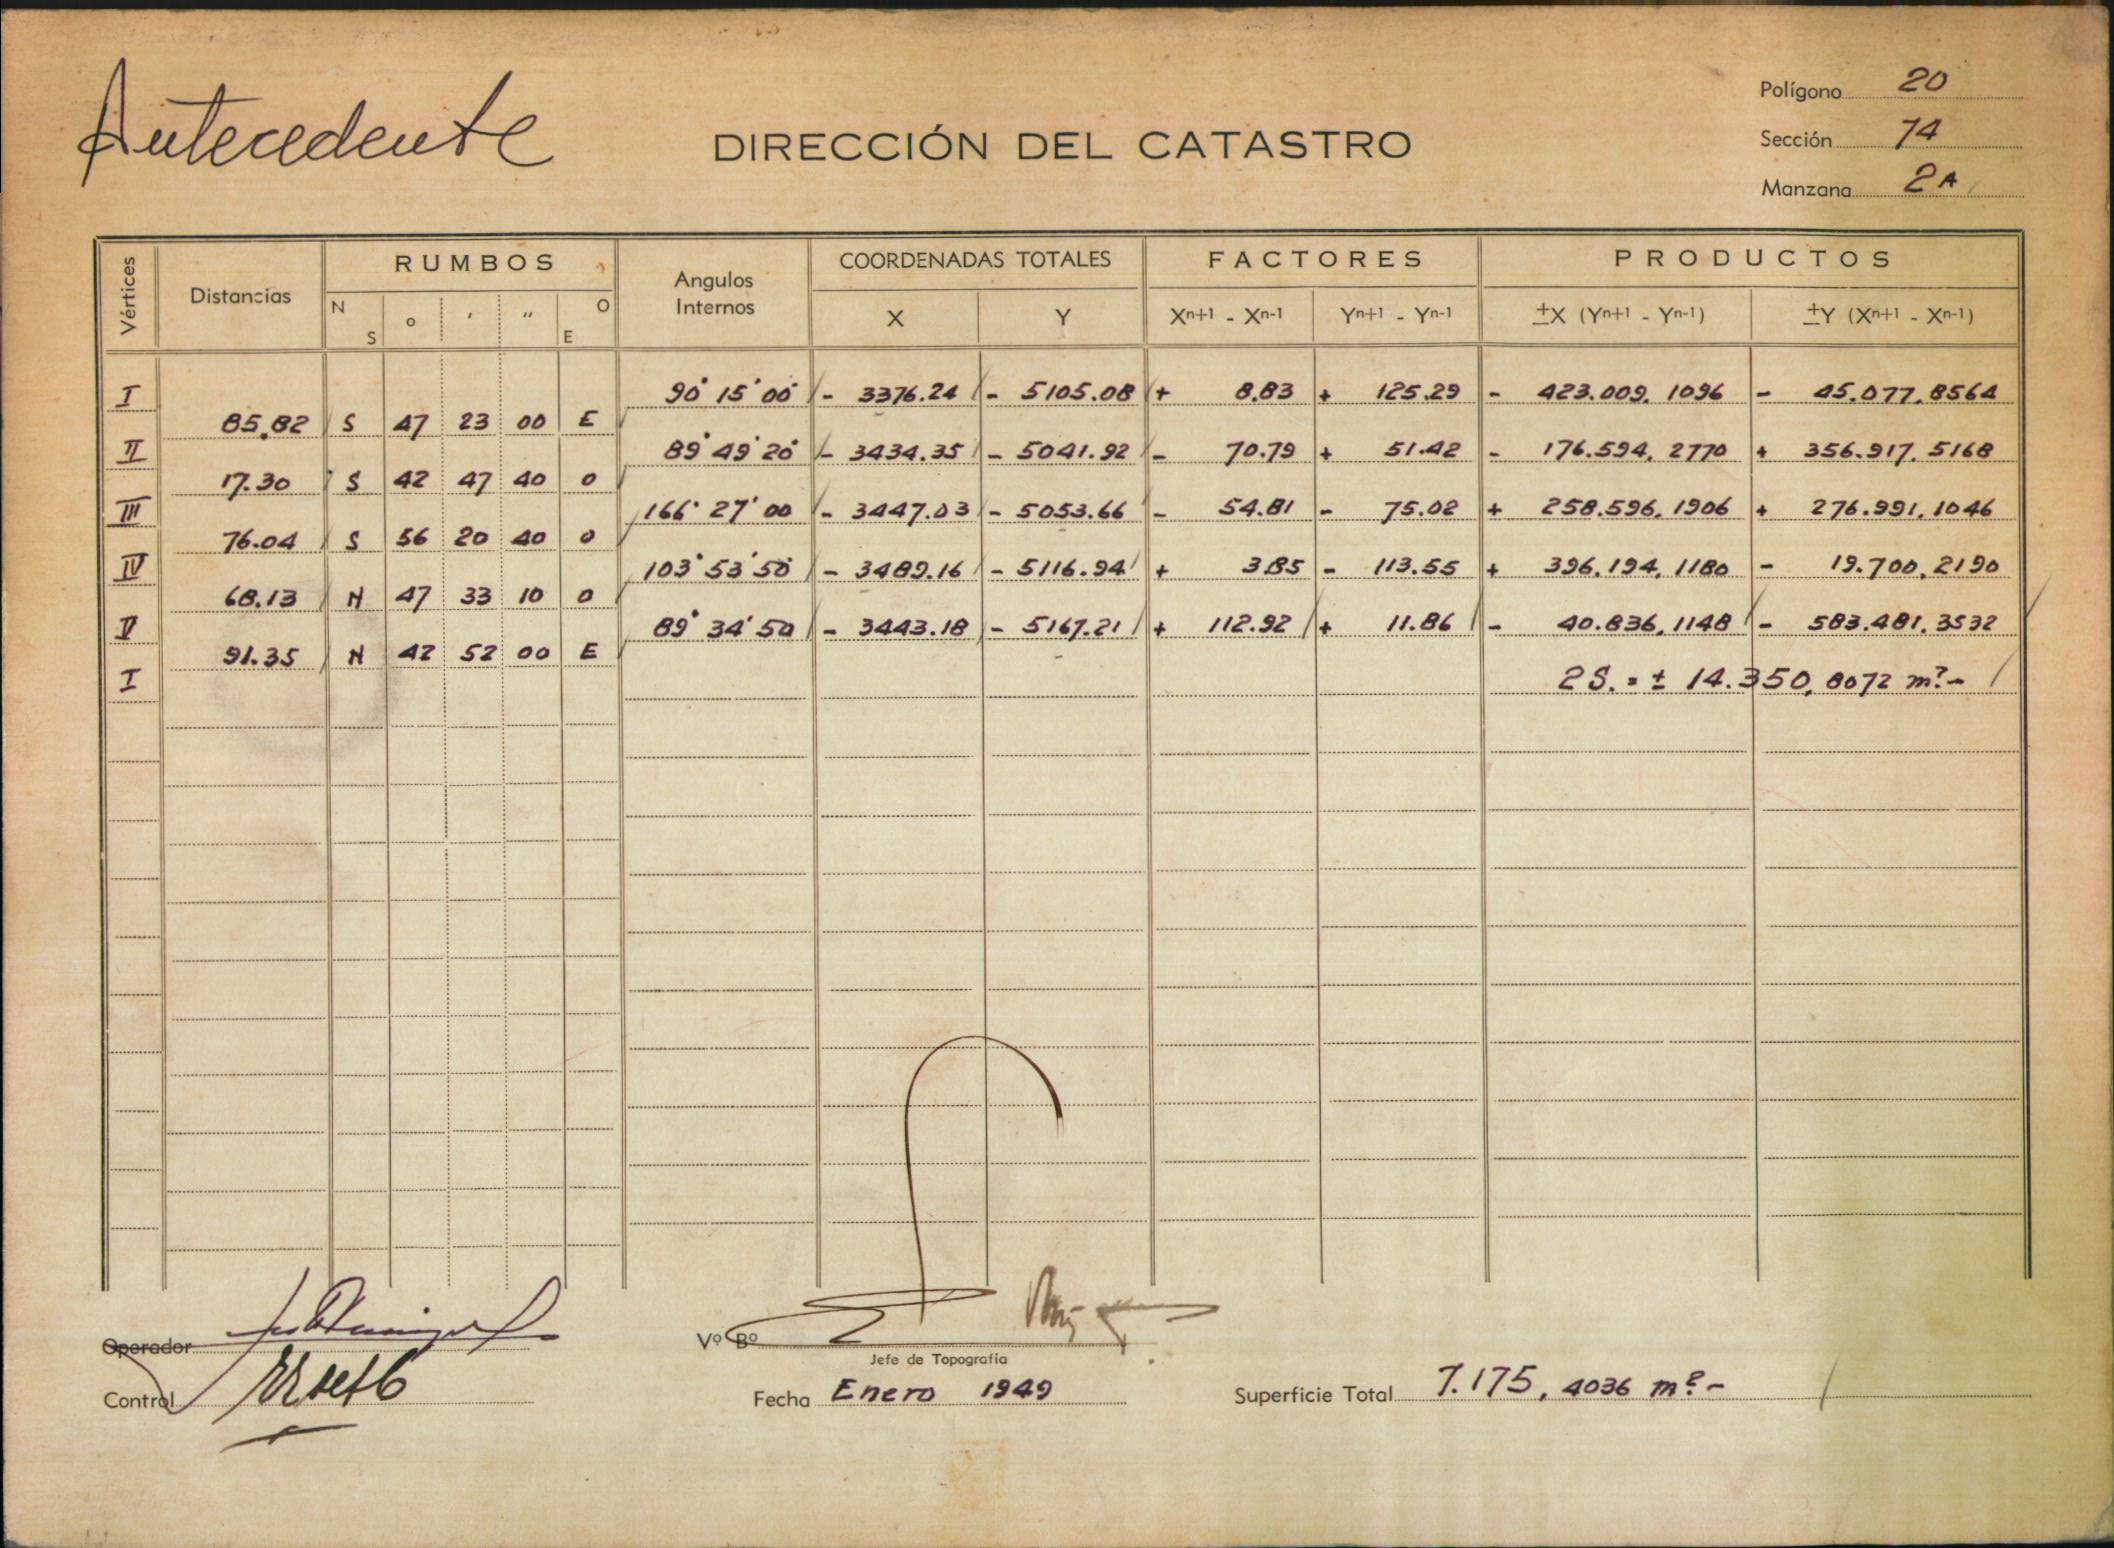 Antecedente
DIRECCIÓN DEL CATASTRO
Polígono 20
Sección 74
Manzana 2A
Vértices Distancias RUMBOS Angulos Internos COORDENADAS TOTALES FACTORES PRODUCTOS
N S o ' " O E X Y Xn+1 - Xn-1 Yn+1 - Yn-1 ±X (Yn+1 - Yn-1) ±Y (Xn+1 - Xn-1)
I 90° 15' 00" - 3376.24 - 5105.08 + 8.83 + 125.29 - 423.009,1096 - 45.077,8564
85.82 S 47 23 00 E
II 89° 49' 20" - 3434.35 - 5041.92 - 70.79 + 51.42 - 176.594,2770 + 356.917,5168
17.30 S 42 47 40 O
III 166° 27' 00 - 3447.03 - 5053.66 - 54.81 - 75.02 + 258.596,1906 + 276.991,1046
76.04 S 56 20 40 O
IV 103° 53' 50" - 3489.16 - 5116.94 + 3.85 - 113.55 + 396.194,1180 - 19.700,2190
68.13 N 47 33 10 O
V 89° 34' 50 - 3443.18 - 5167.21 + 112.92 + 11.86 - 40.836,1148 - 583.481,3532
91.35 N 42 52 00 E
I 2S. = ± 14.350,8072 m².-
Operador
Control
Vº Bº
Jefe de Topografía
Fecha Enero 1949
Superficie Total 7.175,4036 m².-